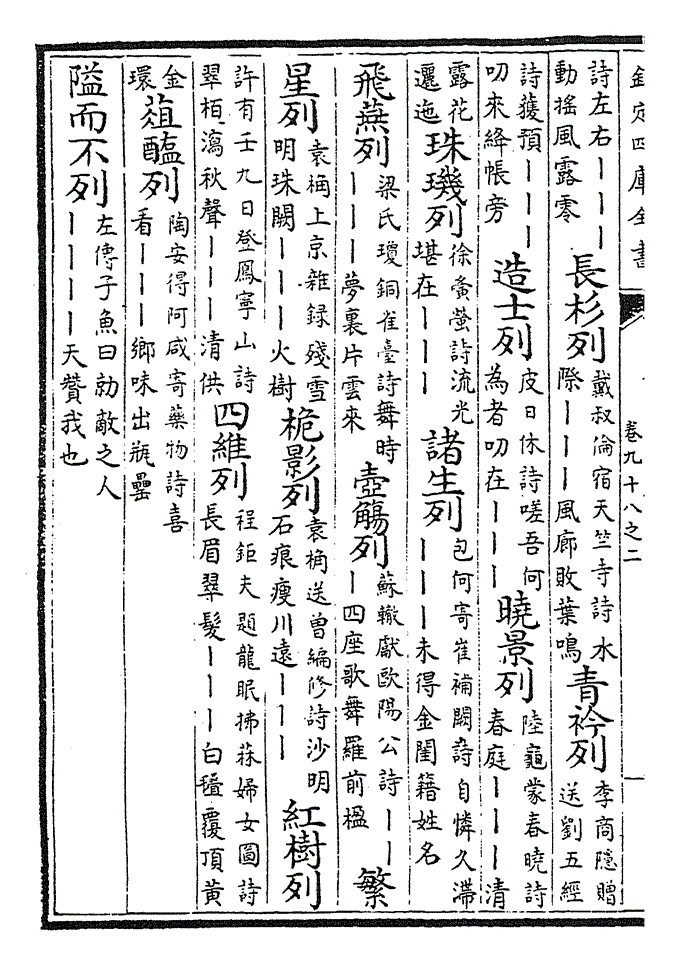 欽定四庫全書 卷九十八之二 一
詩左右丨丨丨動搖風露零 長杉列 戴叔倫宿天竺寺詩水際丨丨丨風廊敗葉鳴 青衿列 李商隱贈送劉五經
詩獲預丨丨丨叨來絳帳旁 造士列 皮日休詩嗟吾何為者叨在丨丨丨 曉景列 陸龜蒙春曉詩春庭丨丨丨清
露花邐迤 珠璣列 徐夤螢詩流光堪在丨丨丨 諸生列 包何寄崔補闕詩自憐久滯丨丨丨未得金閨籍姓名
飛燕列 梁氏瓊銅雀臺詩舞時丨丨丨夢裏片雲來 壺觴列 蘇轍獻歐陽公詩丨丨丨四座歌舞羅前楹 繁
星列 袁桷上京雜録殘雪明珠闕丨丨丨火樹 桅影列 袁桷送曾編修詩沙明石痕瘦川遠丨丨丨 紅樹列
許有壬九日登鳳寧山詩翠栢瀉秋聲丨丨丨清供 四維列 程鉅夫題龍眠拂菻婦女圖詩長眉翠髮丨丨丨白㲲覆頂黄
金環 葅醖列 陶安得阿咸寄藥物詩喜看丨丨丨鄉味出瓶罍
隘而不列 左傳子魚曰勍敵之人丨丨丨丨天贊我也